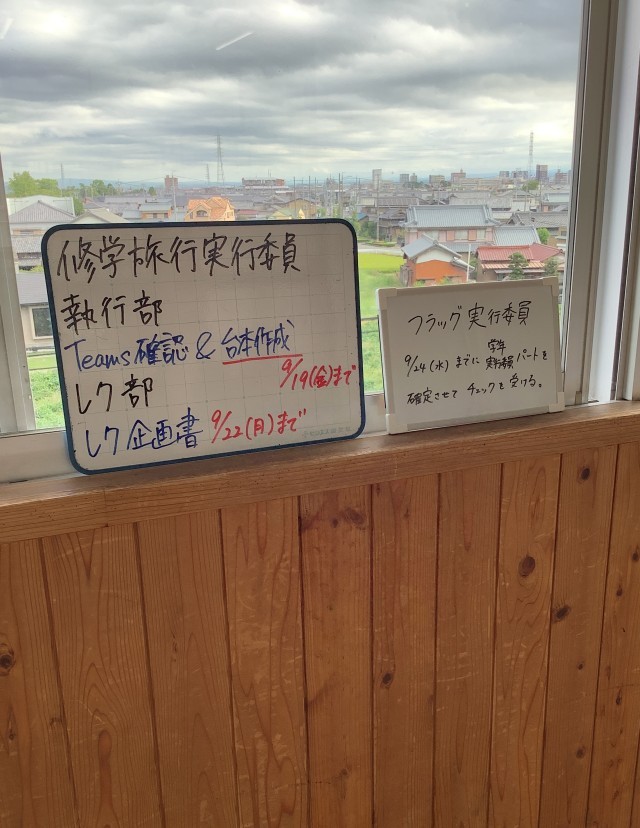 修学旅行実行委員
執行部
Teams確認 & 台本作成
9/19(金)まで
レク部
レク企画書 9/22(月)まで
フラッグ実行委員
学年
9/24(水)までに 実行委員 パートを
確定させて チェックを受ける。